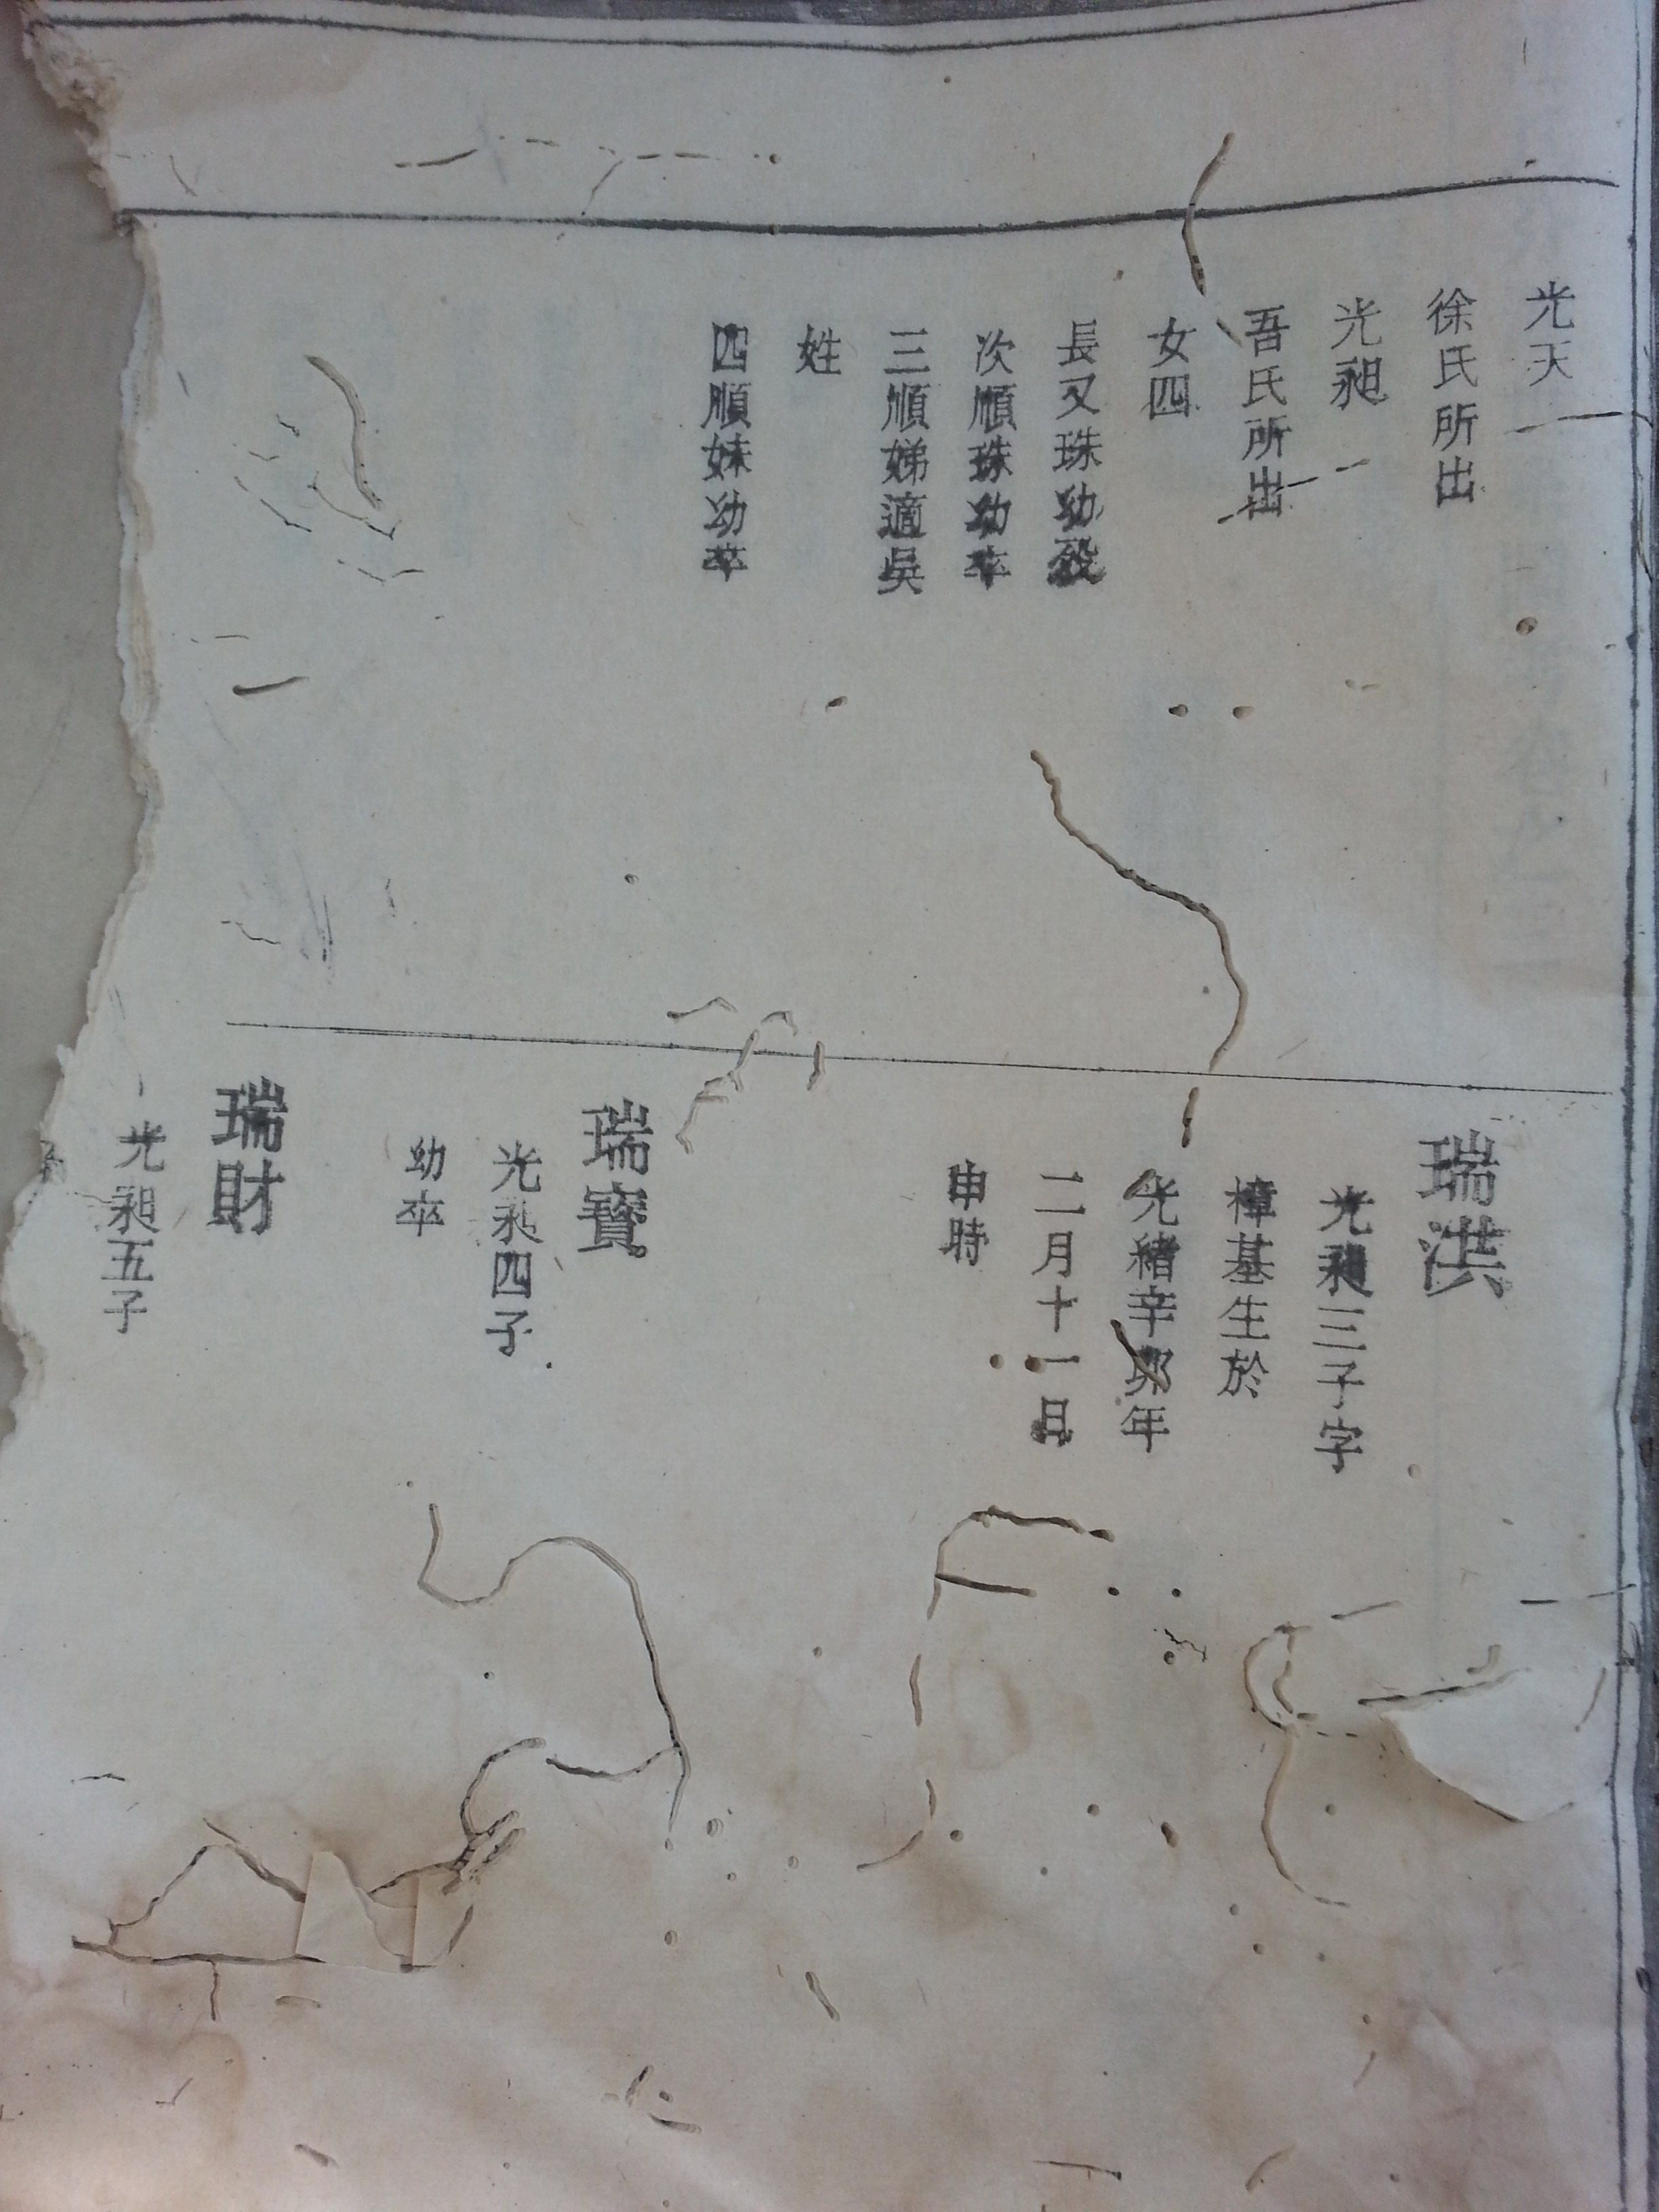 光天
徐氏所出
光昶
吾氏所出
女四
長又珠幼歿
次順珠幼卒
三順娣適吳
姓
四順妹幼卒
瑞洪
光昶三子字
樟基生於
光緒辛卯年
二月十一日
申時
瑞寶
光昶四子
幼卒
瑞財
光昶五子